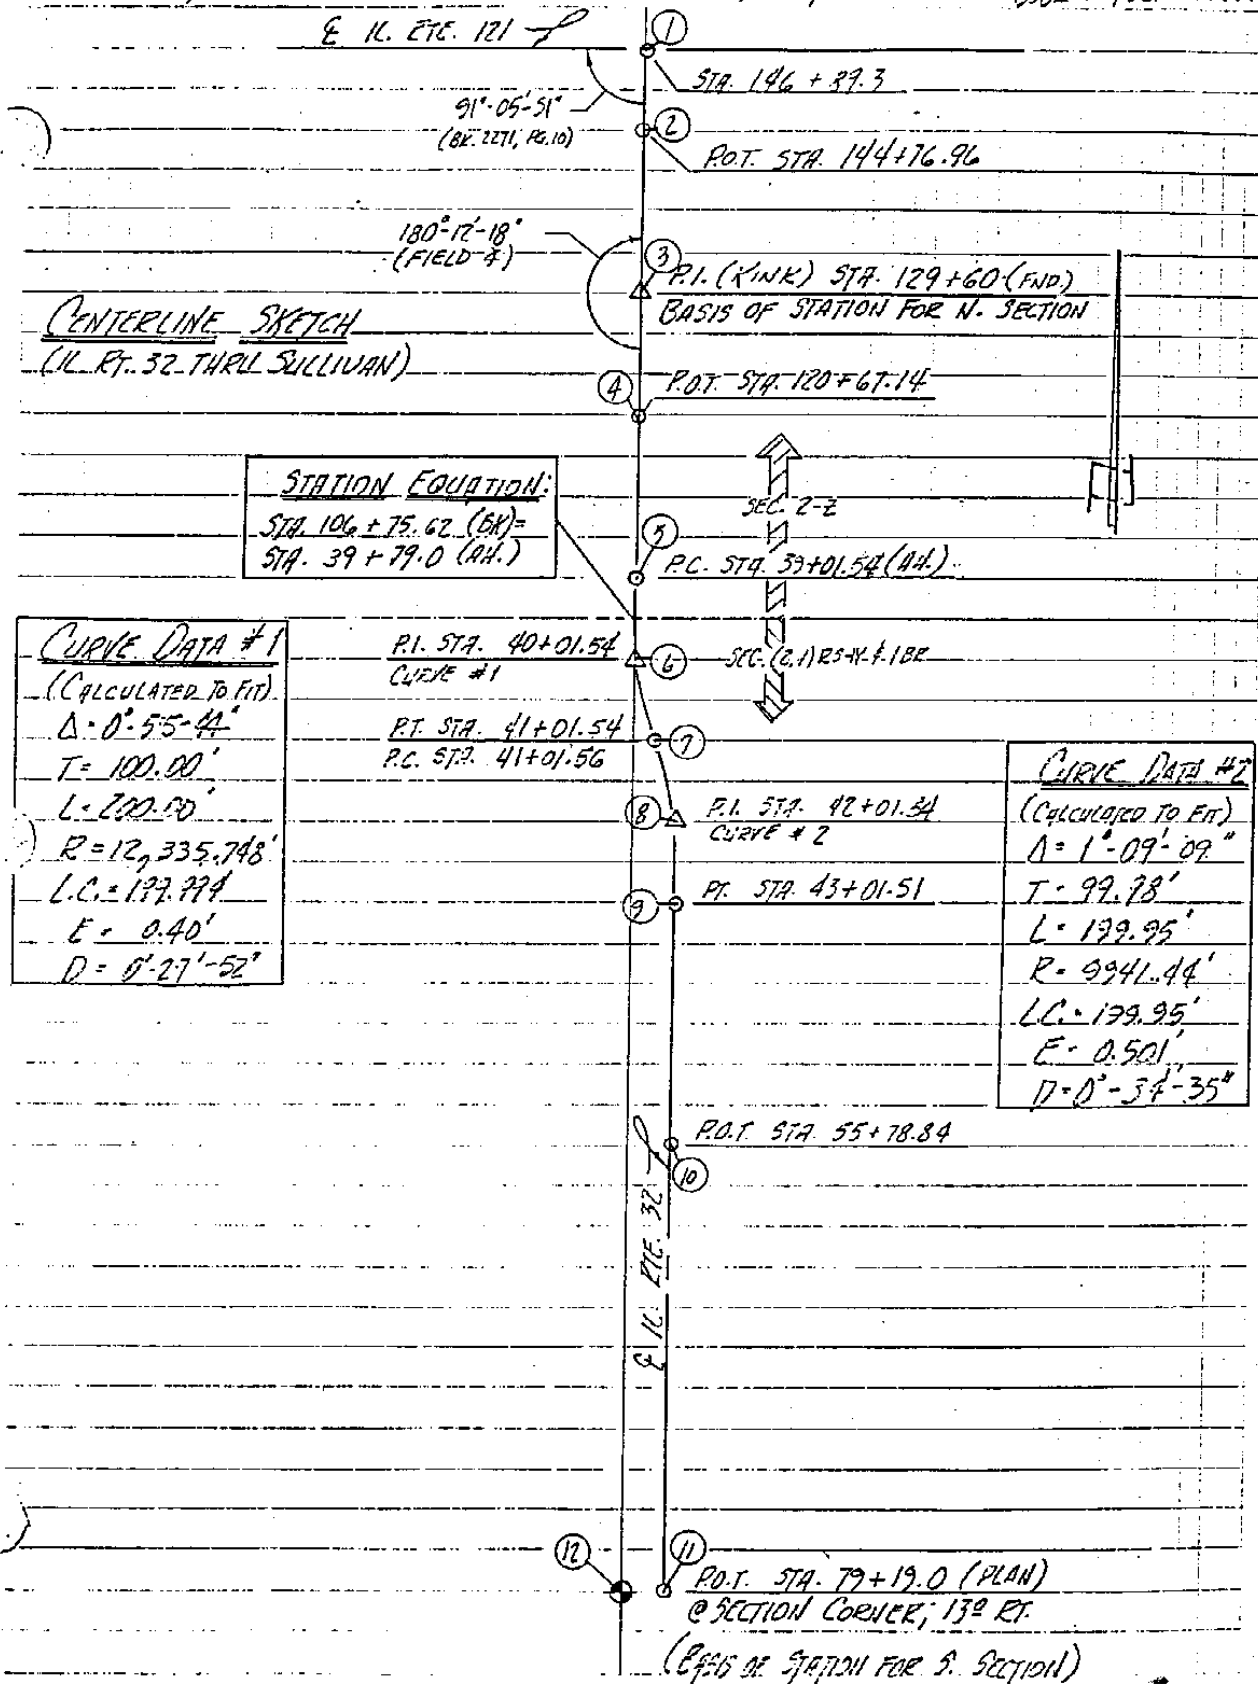 ℄ IL. RTE. 121
1
STA. 146 + 39.3
91°-05'-51"
(BK. 2271, PG. 10)
2
P.O.T. STA. 144+76.96
180°-12'-18"
(FIELD ∡)
3
P.I. (KINK) STA. 129+60 (FND.)
BASIS OF STATION FOR N. SECTION
CENTERLINE SKETCH
(IL. RT. 32 THRU SULLIVAN)
4
P.O.T. STA. 120+67.14
STATION EQUATION:
STA. 106 + 75.62 (BK)=
STA. 39 + 79.0 (AH.)
SEC. 2-Z
5
P.C. STA. 39+01.54 (AH.)
CURVE DATA #1
(CALCULATED TO FIT)
Δ = 0°-55'-44"
T = 100.00'
L = 200.00'
R = 12,335.748'
L.C. = 199.998'
E = 0.40'
D = 0°-27'-52"
P.I. STA. 40+01.54
CURVE #1
6
SEC. (2,1)
P.T. STA. 41+01.54
P.C. STA. 41+01.56
7
8
P.I. STA. 42+01.34
CURVE #2
9
PT. STA. 43+01.51
CURVE DATA #2
(CALCULATED TO FIT)
Δ = 1°-09'-09"
T = 99.98'
L = 199.95'
R = 9941.44'
L.C. = 199.95'
E = 0.501'
D = 0°-34'-35"
P.O.T. STA. 55+78.84
10
℄ IL. RTE. 32
12
11
P.O.T. STA. 79+19.0 (PLAN)
@ SECTION CORNER; 13º RT.
(BASIS OF STATION FOR S. SECTION)